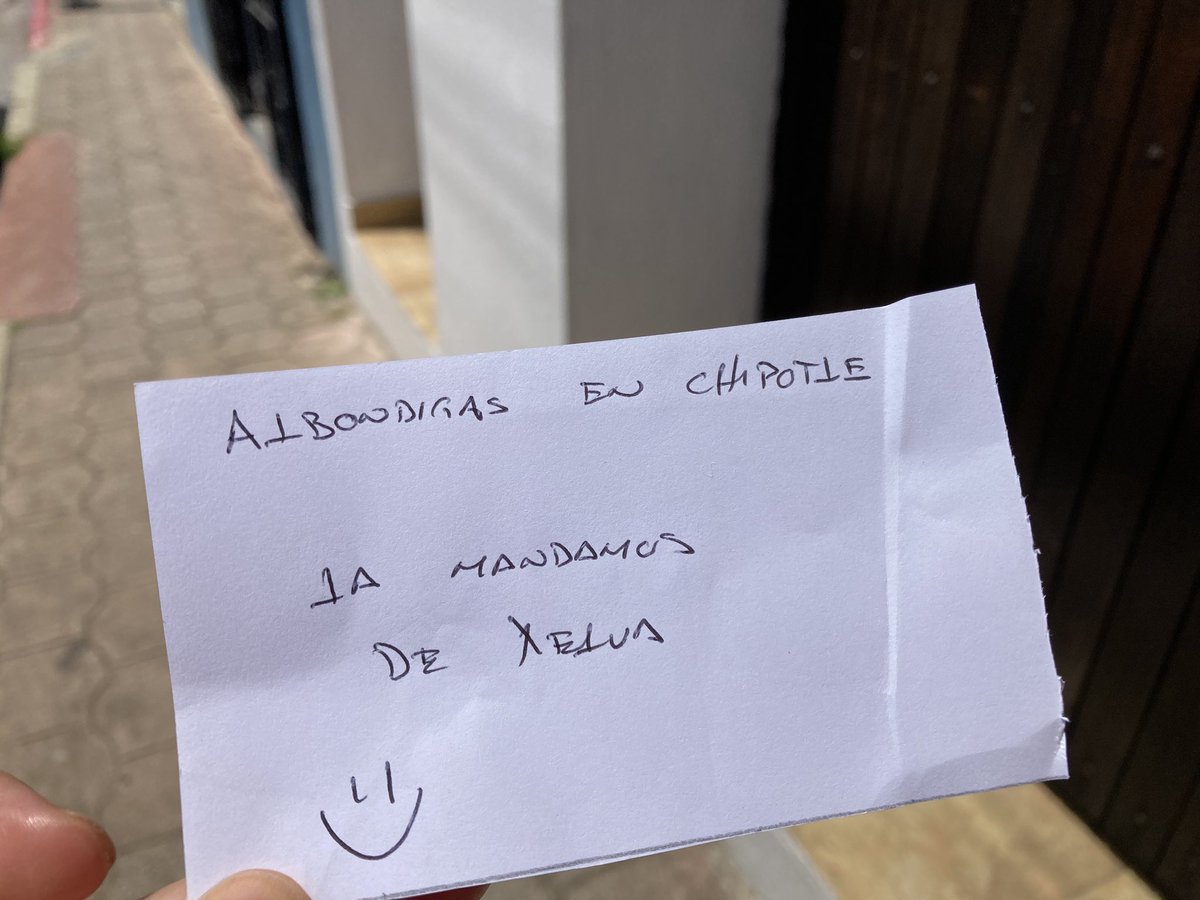 ALBONDIGAS EN CHIPOTLE
LA MANDAMOS
DE XELVA